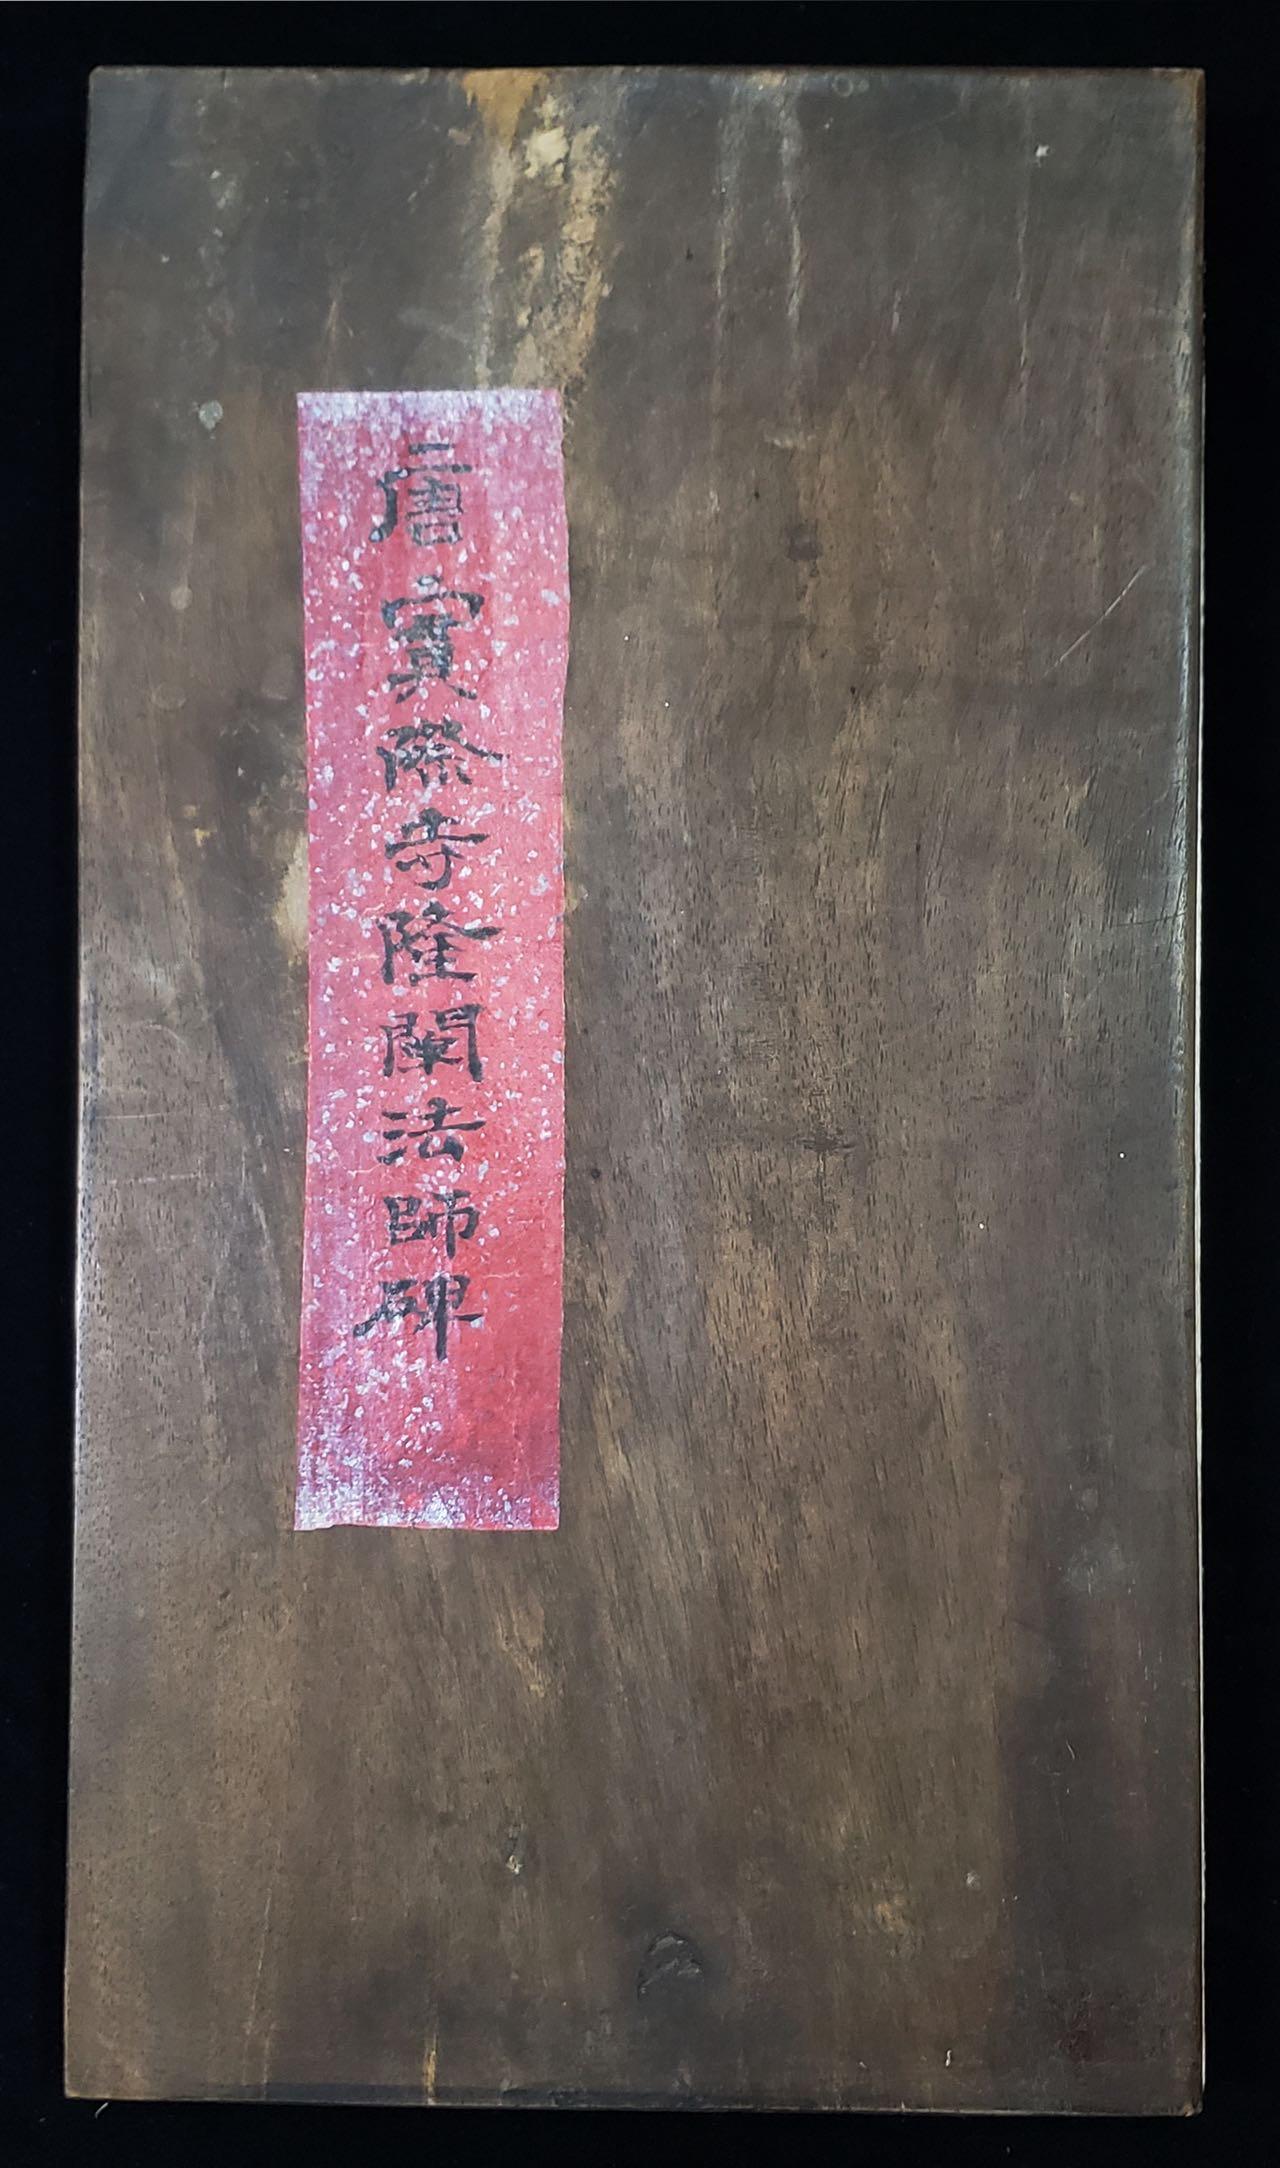 唐實際寺隆闡法師碑